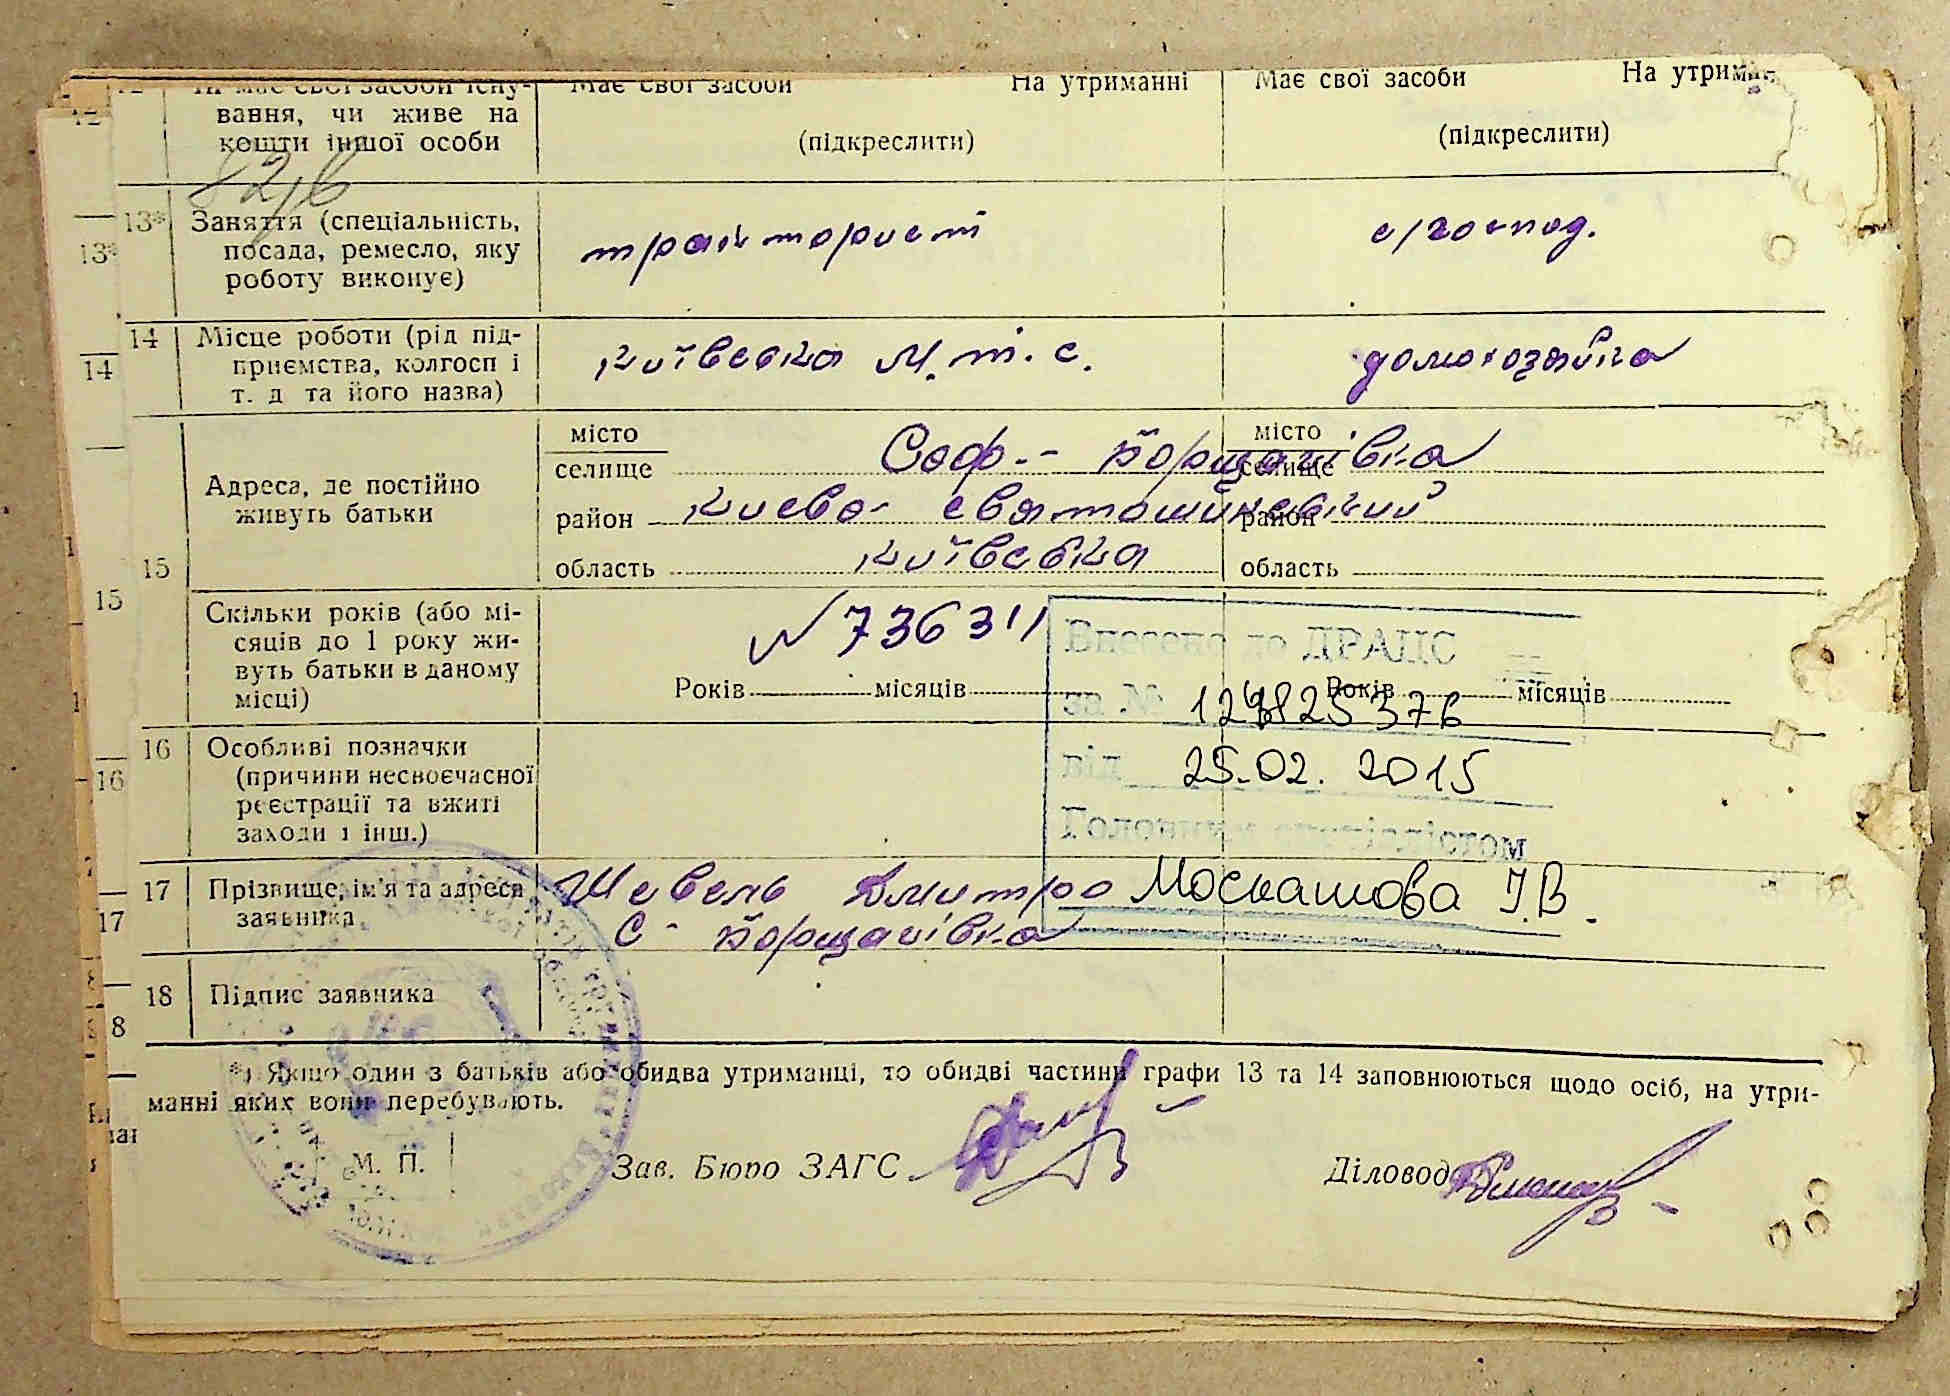 вання, чи живе на
кошти іншої особи
Має свої засоби На утриманні
(підкреслити)
Має свої засоби На утрим
(підкреслити)
13* Заняття (спеціальність,
посада, ремесло, яку
роботу виконує)
тракторист
с/господ.
14 Місце роботи (рід під-
приємства, колгосп і
т. д та його назва)
київська М.т.с.
домохозяйка
15 Адреса, де постійно
живуть батьки
місто
селище Соф.- Борщагівка
район києво-святошинський
область київська
місто
селище
район
область
Скільки років (або мі-
сяців до 1 року жи-
вуть батьки в даному
місці)
Років місяців
Років місяців
Внесено до ДРАЦС
за №
від 25.02.2015
Головним спеціалістом
Москашова І.В.
16 Особливі позначки
(причини несвоєчасної
реєстрації та вжиті
заходи і інш.)
17 Прізвище, ім'я та адреса
заявника
Шевель Дмитро
С-Борщагівка
18 Підпис заявника
*) Якщо один з батьків або обидва утриманці, то обидві частини графи 13 та 14 заповнюються щодо осіб, на утри-
манні яких вони перебувають.
М. П.
Зав. Бюро ЗАГС
Діловод
13*
14
15
16
17